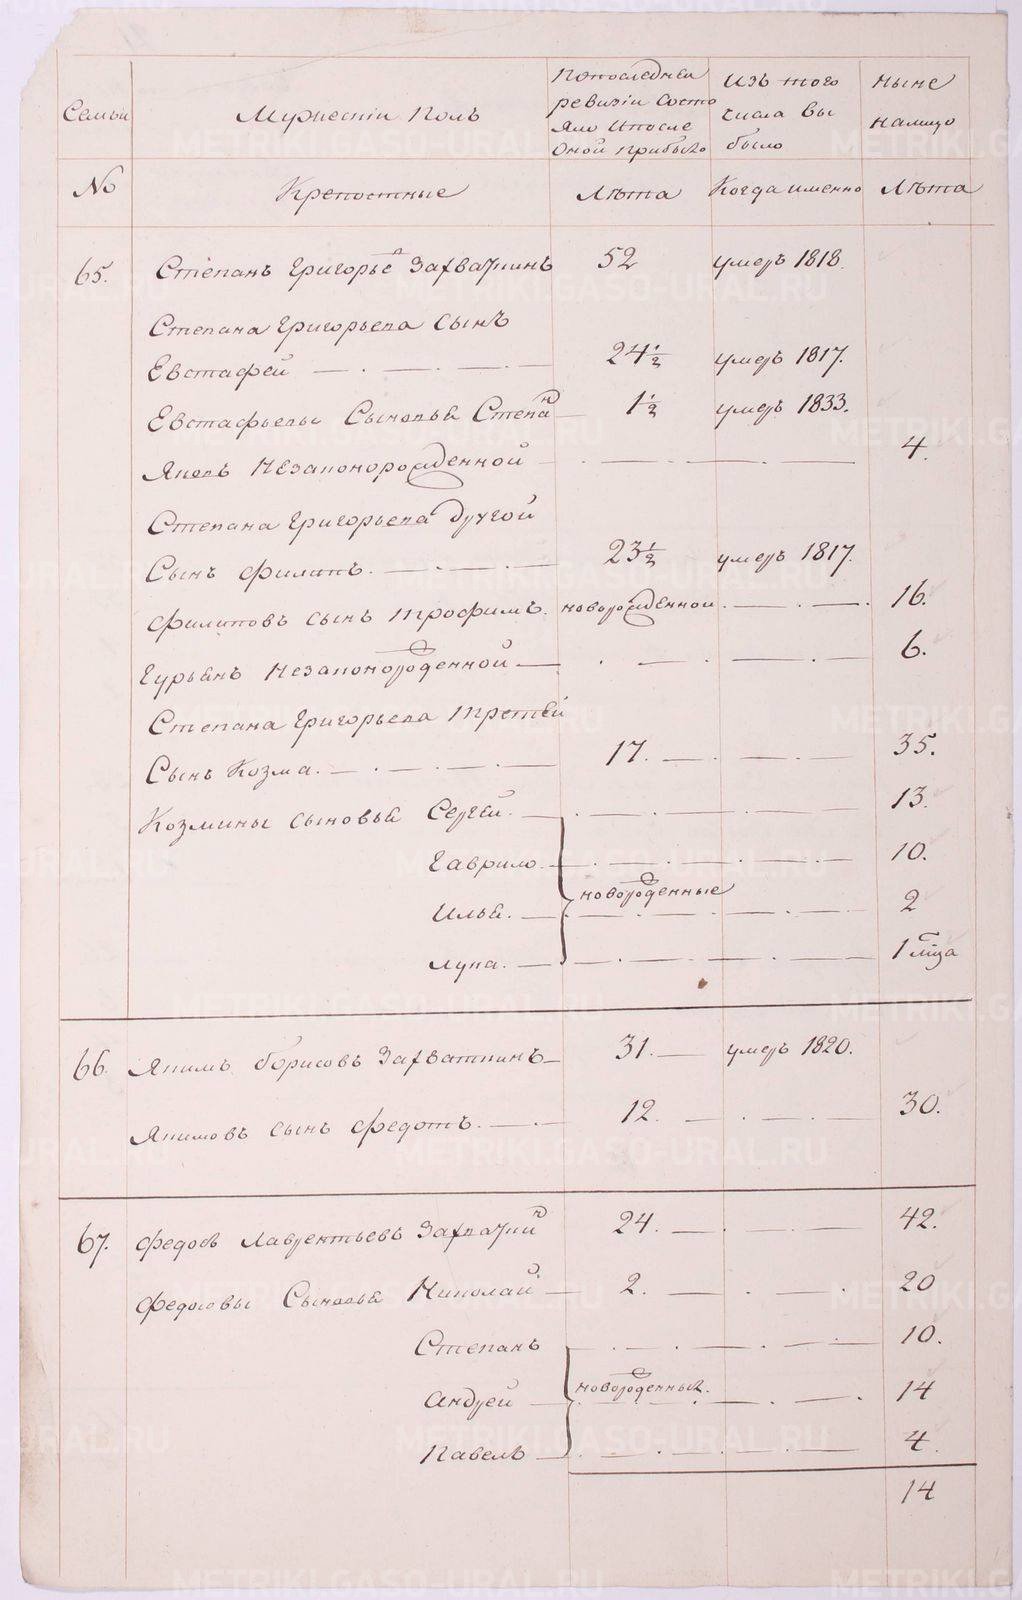 Семьи
Мужескій Полъ
Попоследней
ревизіи Состо
яло Ипосле
Оной прибыло
Изъ того
числа Вы
было
Ныне
налицо
No
Крепостные
Лѣта
Когда именно
Лѣта
65. Степанъ Григорьевъ Захваткинъ 52 умеръ 1818.
Степана Григорьева сынъ
Евстафей 24 1/2 умеръ 1817.
Евстафьевы Сыновья Степанъ 1 1/2 умеръ 1833.
Яковъ Незаконорожденной 4.
Степана Григорьева другой
Сынъ Филипъ. 23 1/2 умеръ 1817.
Филиповъ сынъ трофимъ. новорожденной 16.
Гурьянъ Незаконорожденной 6.
Степана Григорьева третей
Сынъ Козма. 17. 35.
Козмины сыновья Сергей. 13.
Гаврило. 10.
новорожденные
Илья. 2
Лука. 1 мца
66. Якимъ борисовъ Захваткинъ 31. умеръ 1820.
Якимовъ сынъ Федотъ. 12. 30.
67. Федосъ Лаврентьевъ Захваткинъ 24. 42.
Федосовы Сыновья Николай 2. 20
Степанъ 10.
новорожденныя.
Андрей 14
Павелъ 4.
14
METRIKI.GASO-URAL.RU